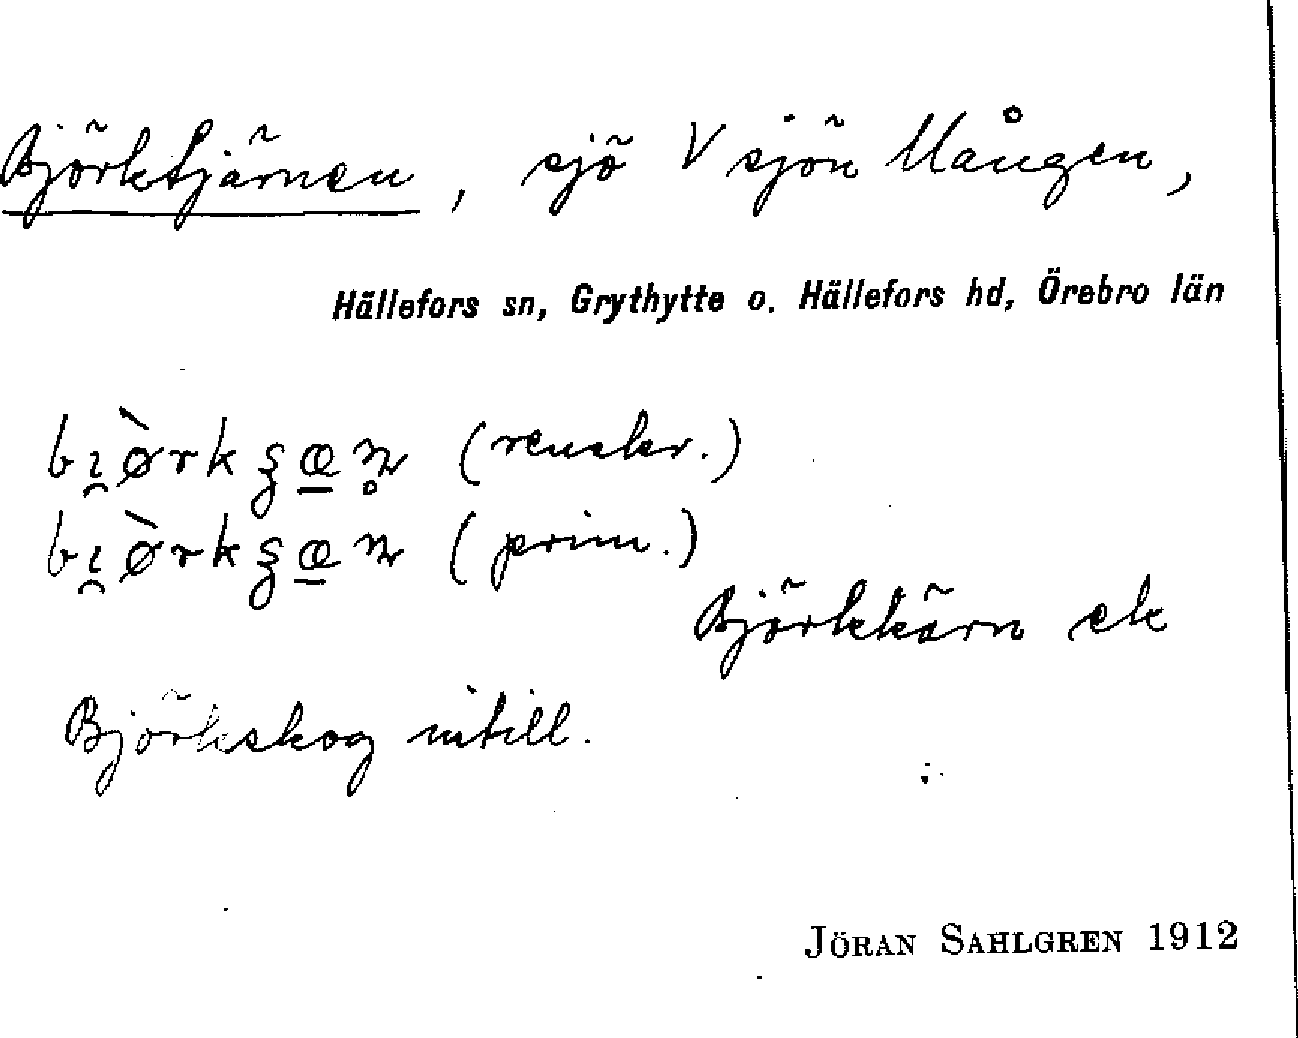 Björktjärnen, sjö V sjön Mången,
Hällefors sn, Grythytte o. Hällefors hd, Örebro län
bı̯ø̀rkʂæ̠n̥ (renskr.)
bı̯ø̀rkʂæ̠n (prim.)
Björkkärn ek
Björkskog intill.
JÖRAN SAHLGREN 1912